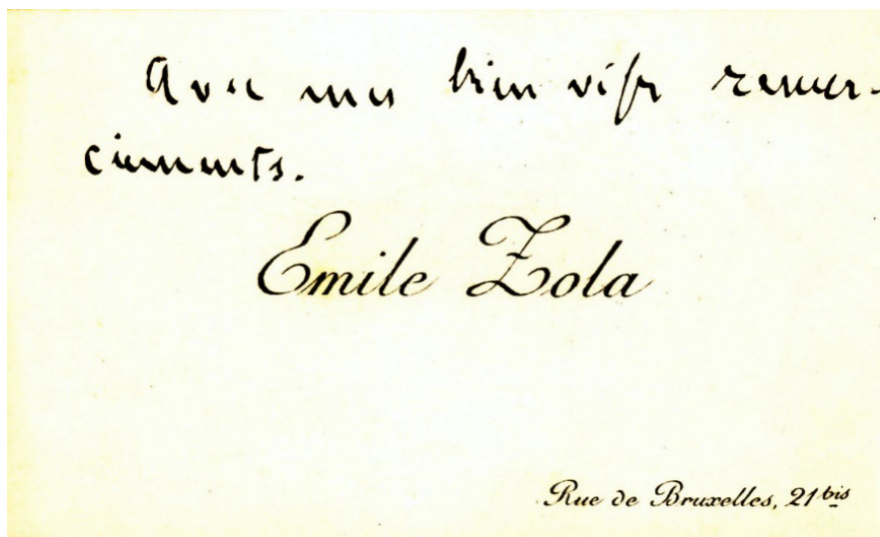 Avec mes bien vifs remer-
ciements.
Emile Zola
Rue de Bruxelles, 21 bis